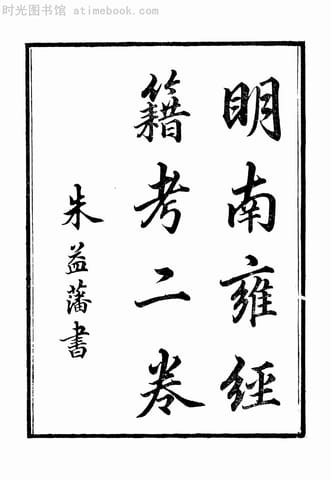 时光图书馆 atimebook.com
明南雍經
籍考二卷
朱益藩書